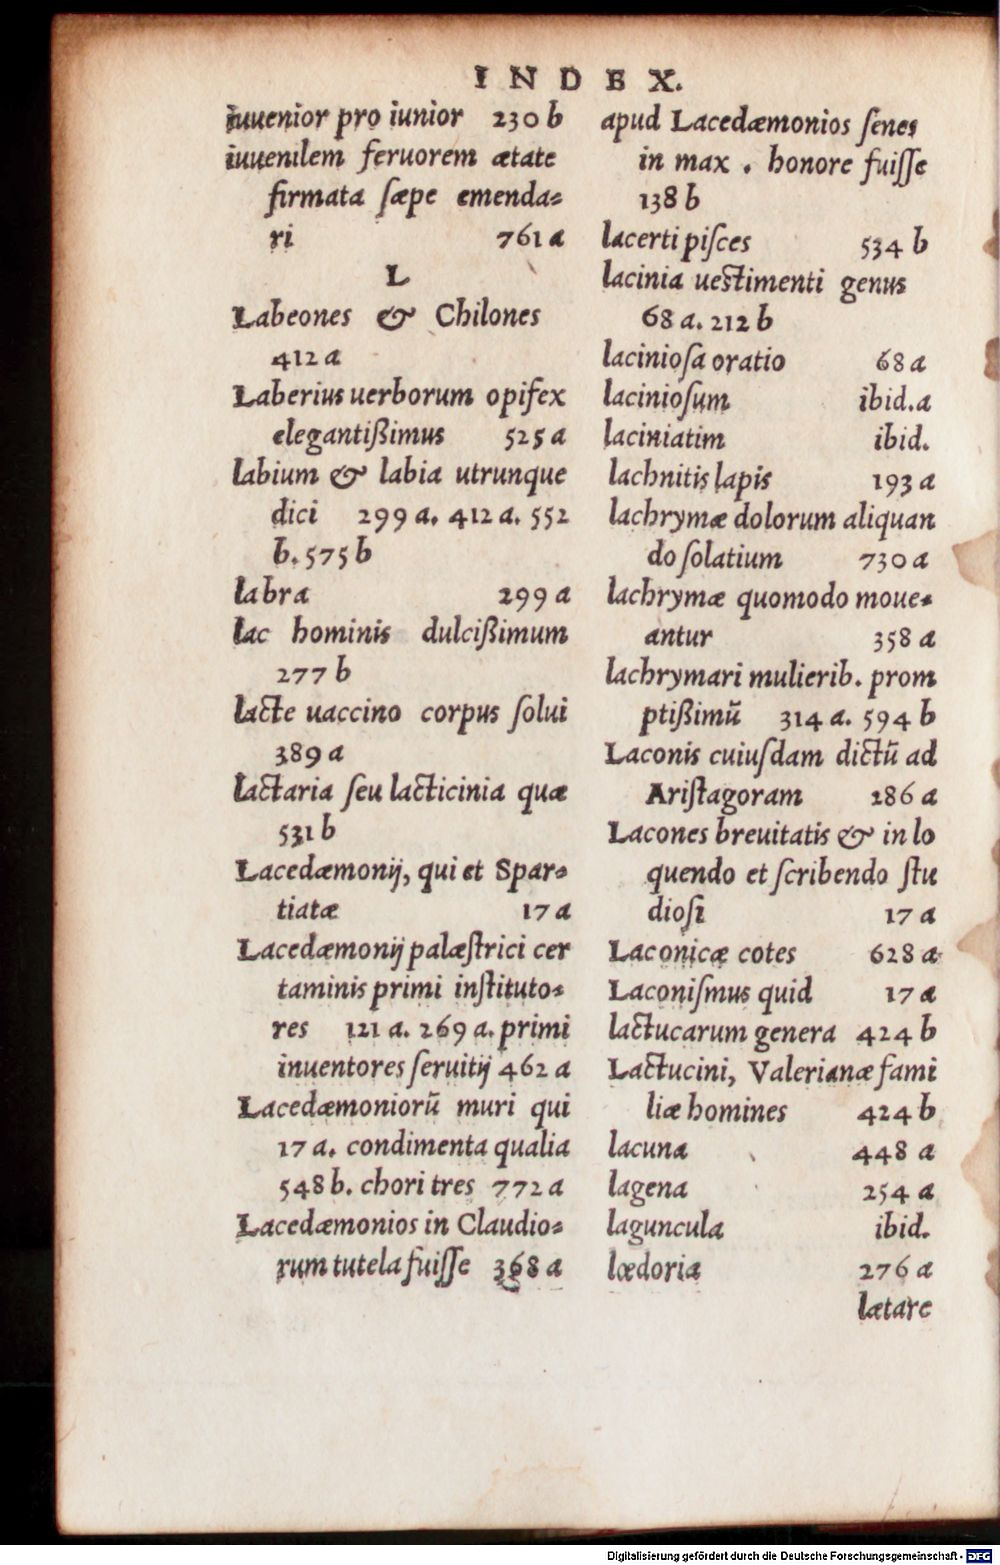 INDEX.
iuuenior pro iunior 230 b
iuuenilem feruorem ætate
firmata sæpe emenda⸗
ri 761 a
L
Labeones & Chilones
412 a
Laberius uerborum opifex
elegantißimus 525 a
labium & labia utrunque
dici 299 a. 412 a. 552
b. 575 b
labra 299 a
lac hominis dulcißimum
277 b
lacte uaccino corpus ſolui
389 a
lactaria ſeu lacticinia quæ
531 b
Lacedæmonij, qui et Spar⸗
tiatæ 17 a
Lacedæmonij palæſtrici cer
taminis primi inſtituto⸗
res 121 a. 269 a. primi
inuentores ſeruitij 462 a
Lacedæmoniorū muri qui
17 a. condimenta qualia
548 b. chori tres 772 a
Lacedæmonios in Claudio⸗
rum tutela fuiſſe 368 a
apud Lacedæmonios ſenes
in max . honore fuiſſe
138 b
lacerti piſces 534 b
lacinia ueſtimenti genus
68 a. 212 b
lacinioſa oratio 68 a
lacinioſum ibid.a
laciniatim ibid.
lachnitis lapis 193 a
lachrymæ dolorum aliquan
do ſolatium 730 a
lachrymæ quomodo moue⸗
antur 358 a
lachrymari mulierib. prom
ptißimū 314 a. 594 b
Laconis cuiuſdam dictū ad
Ariſtagoram 286 a
Lacones breuitatis & in lo
quendo et ſcribendo ſtu
dioſi 17 a
Laconicæ cotes 628 a
Laconiſmus quid 17 a
lactucarum genera 424 b
Lactucini, Valerianæ fami
liæ homines 424 b
lacuna 448 a
lagena 254 a
laguncula ibid.
lœdoria 276 a
lætare
Digitalisierung gefördert durch die Deutsche Forschungsgemeinschaft - DFG